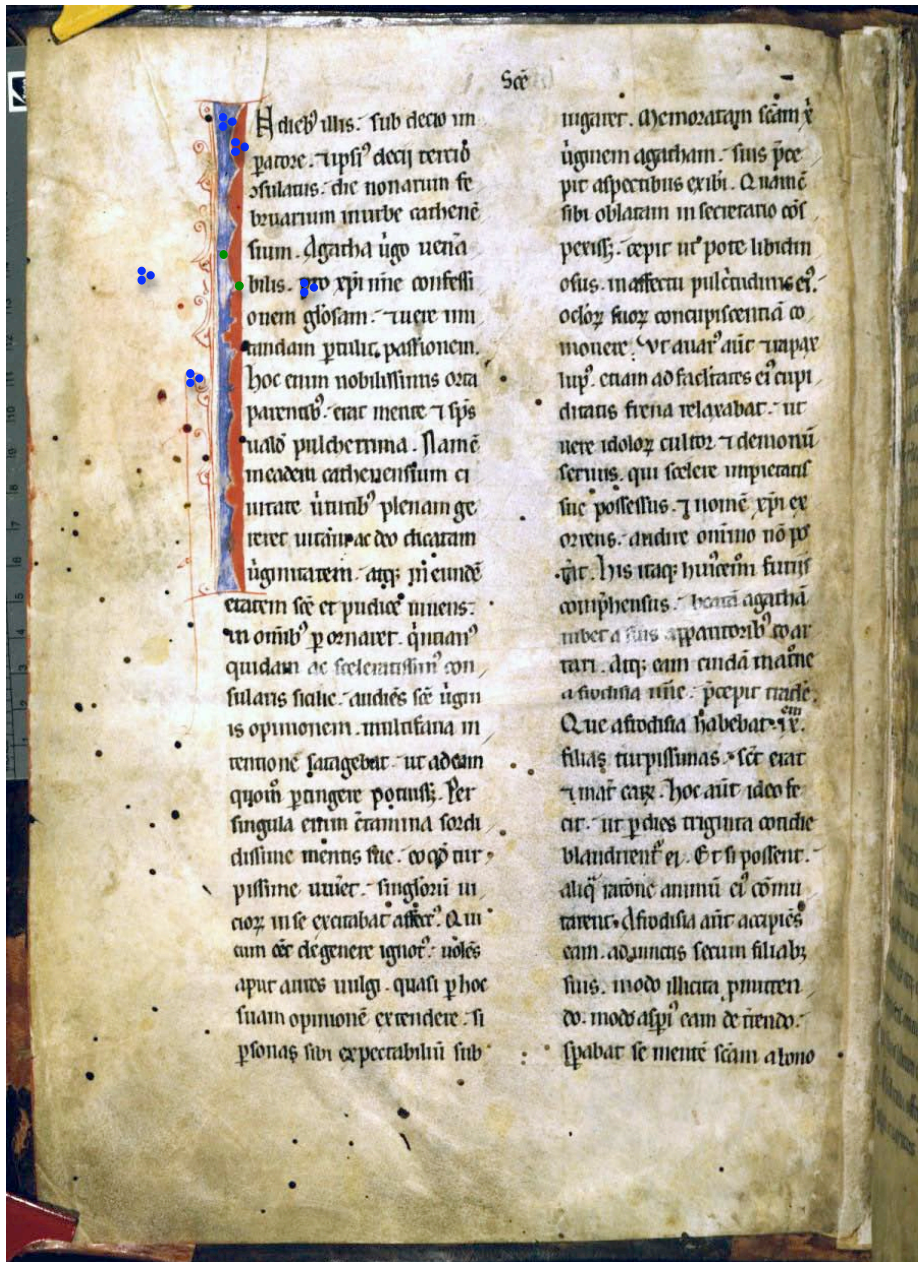 Scē
In dieb᷒ illis. sub decio im
peratore. ⁊ ipsi᷒ decij tercio
ꝯsulatus. die nonarum fe
bruarium in urbe cathenē
sium. Agatha ùgo uen̄a
bilis. pro xp̄i nīne confessi
onem glōsam. ⁊ uere im
tandam ꝑtulit passionem.
hoc enim nobilissimis orta
parentib᷒. erat mente ⁊ sp̄s
ualō pulcherrima. Nāmē
in eadem cathenensium ci
uitate ùtutib᷒ plenam ge
reret uitam ac deo dicatam
ùginitatem. atq; in eundē
etatem scē et pudice uiuens.
in om̄ib᷒ ꝑornaret. q̇ntian᷒
quidam ac sceleratissim᷒ con
sularis sicilie. audiēs scē ùgin
is opinionem. multifaria in
tentionē satagebat. ut ad eam
quoꝫ ꝑtingere potuiss;. Per
singula enim c̄tamina sordi
dissime mentis sue. eo qd̄ tur
pissime uiueret. singlōrū ui
cioꝝ in se excitabat affect᷒. Qui
cum cēt de genere ignot᷒. uolēs
aput aures uulgi. quasi ꝑ hoc
suam opinionē extendere. si
ꝑsonas sibi expectabiliū sub
iugaret. Memoratam scām x̄
ùginem agatham. suis p̄ce
pit aspectibus exibi. Quamē
sibi oblatam in secretario cōs
pexiss;. cepit ut pote libidin
osus. in affectu pulc̄tudinis ei᷒.
ocloꝝ suoꝝ concupiscentiā co
monere. Vt auar᷒ aūt ⁊ rapax
lup᷒. etiam ad facl̄tates ei᷒ cupi
ditatis frena relaxabat. ut
uere idoloꝝ cultor ⁊ demonū
seruus. qui scelere impietatis
sue possessus. ⁊ nomē xp̄i ex
orrens. audire om̄ino nō po
tāt. his itaq; huic̄em̄ furiis
comp̄hensus. beatā agathā
iubet a suis apparitorib᷒ coar
tari. Atq; eam cuidā mat̄ne
afrodisia nīne. p̄cepit tradē.
Que afrodisia habebat .ix.em
filias turpissimas. sēt erat
⁊ mat̄ eaꝝ. hoc aūt ideo fe
cit. ut ꝑ dies triginta cotidie
blandirent᷒ ei. Et si possent.
aliq̄ ratōne animū ei᷒ cōmu
tarent. Afrodisia aūt accipiēs
eam. adiunctis secum filiab;
suis. modo illicita ꝓmitten
do. modo asp̄i᷒ eam de t̄rendo.
sp̄abat se mentē scām a bono